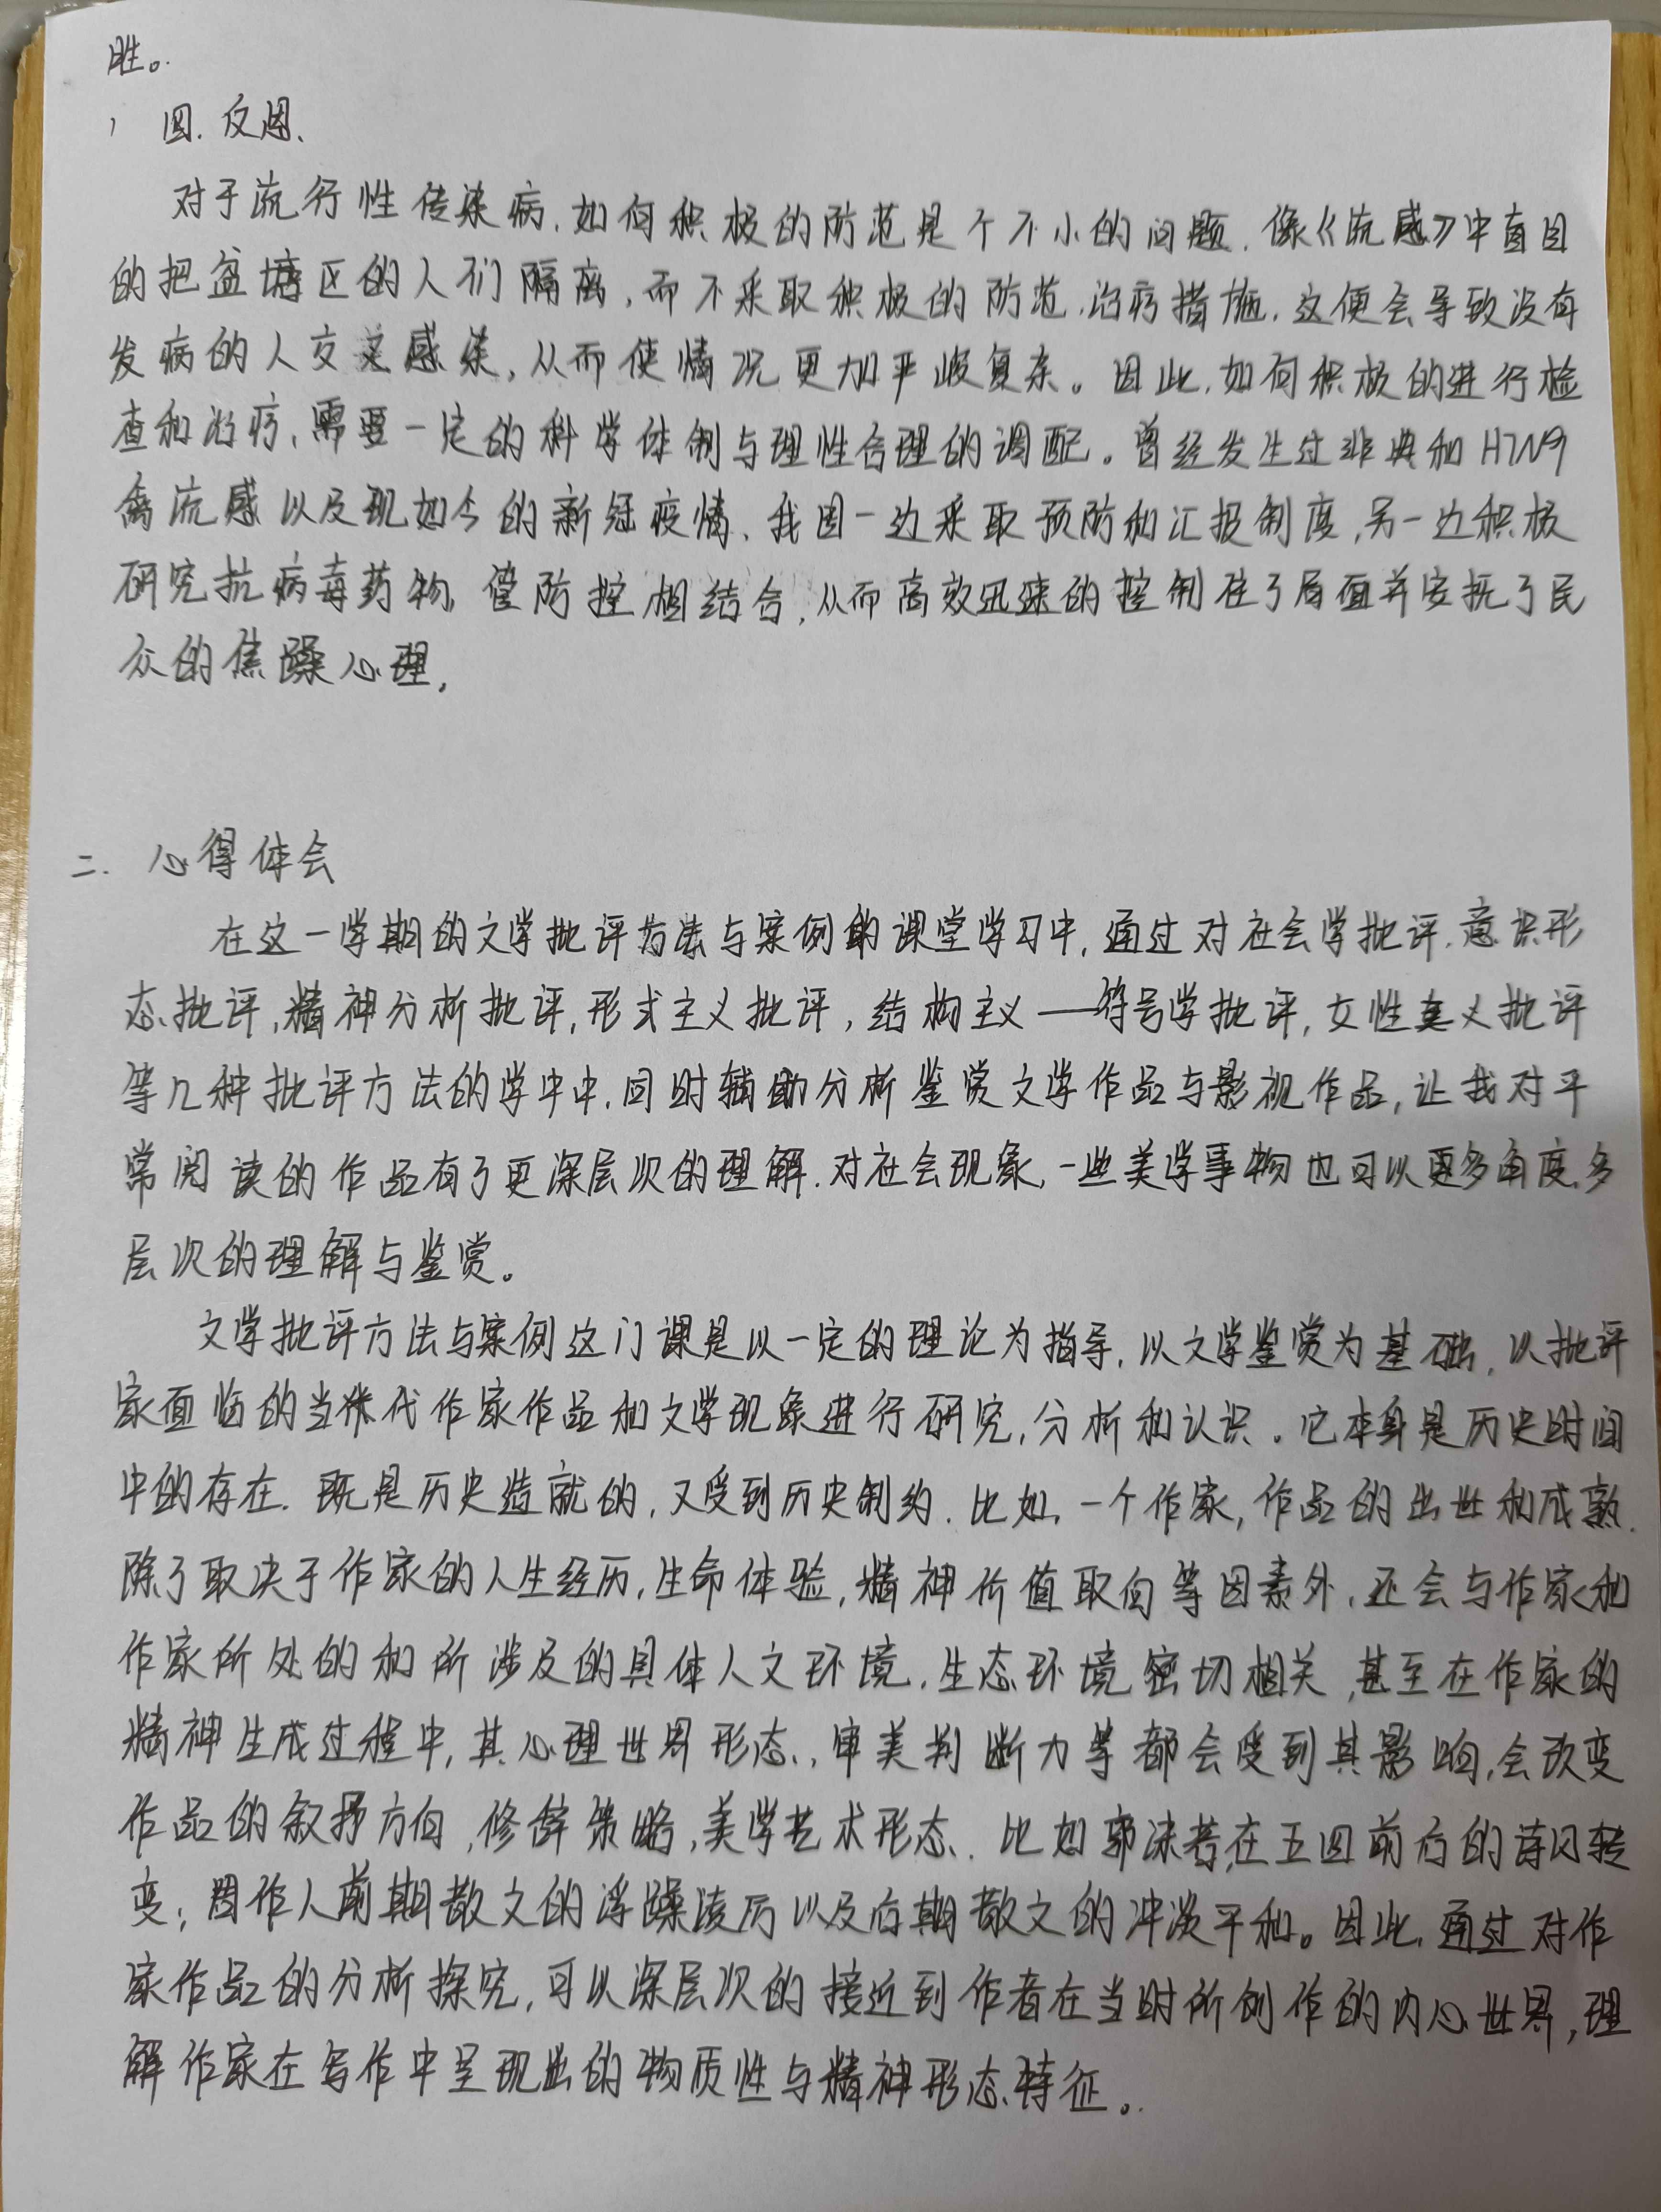 胜。
四.反思、
对于流行性传染病,如何积极的防范是个不小的问题,像《流感》中盲目
的把盆塘区的人们隔离,而不采取积极的防范、治疗措施,这便会导致没有
发病的人交叉感染,从而使情况更加严峻复杂。因此,如何积极的进行检
查和治疗,需要一定的科学体制与理性合理的调配。曾经发生过非典和H7N9
禽流感以及现如今的新冠疫情、我国一边采取预防和汇报制度,另一边积极
研究抗病毒药物,管防控相结合,从而高效迅速的控制住了局面并安抚了民
众的焦躁心理,
二.心得体会
在这一学期的文学批评方法与案例的课堂学习中,通过对社会学批评、意识形
态批评,精神分析批评,形式主义批评,结构主义——符号学批评,女性主义批评
等几种批评方法的学中中,同时辅助分析鉴赏文学作品与影视作品,让我对平
常阅读的作品有了更深层次的理解.对社会现象,一些美学事物也可以更多角度、多
层次的理解与鉴赏。
文学批评方法与案例这门课是以一定的理论为指导,以文学鉴赏为基础,以批评
家面临的当代作家作品和文学现象进行研究,分析和认识。它本身是历史时间
中的存在.既是历史造就的,又受到历史制约.比如,一个作家,作品的出世和成熟.
除了取决于作家的人生经历,生命体验,精神价值取向等因素外,还会与作家和
作家所处的和所涉及的具体人文环境,生态环境密切相关,甚至在作家的
精神生成过程中,其心理世界形态、审美判断力等都会受到其影响,会改变
作品的叙抒方向,修辞策略,美学艺术形态、比如郭沫若,在五四前后的诗风转
变;周作人前期散文的浮躁凌厉以及后期散文的冲淡平和。因此,通过对作
家作品的分析探究,可以深层次的接近到作者在当时所创作的内心世界,理
解作家在写作中呈现出的物质性与精神形态特征。